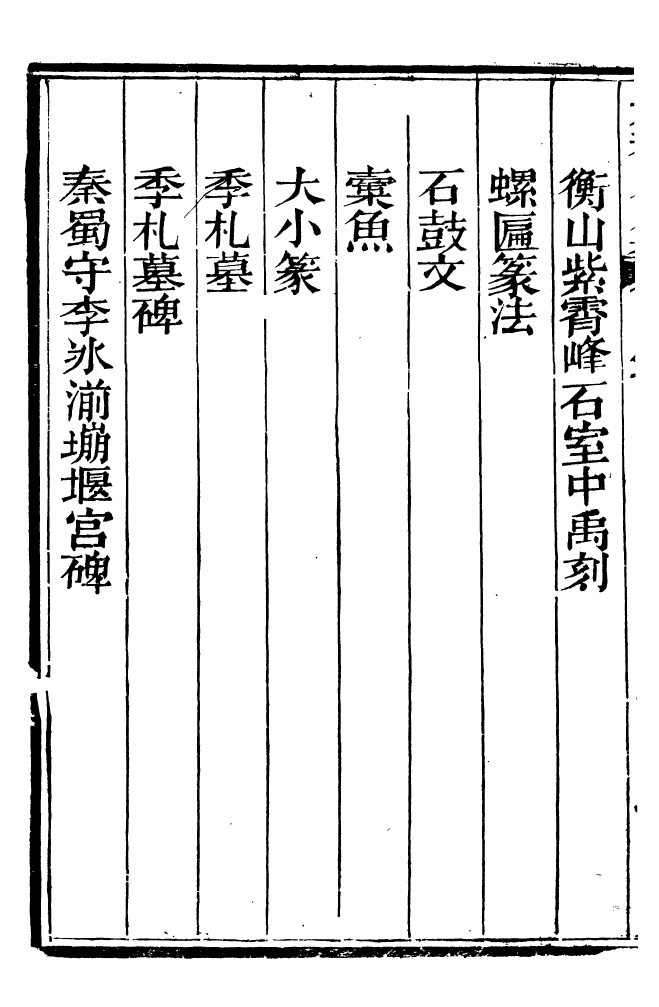 衡山紫霄峰石室中禹刻
螺匾篆法
石鼓文
橐魚
大小篆
季札墓
季札墓碑
秦蜀守李氷湔堋堰官碑